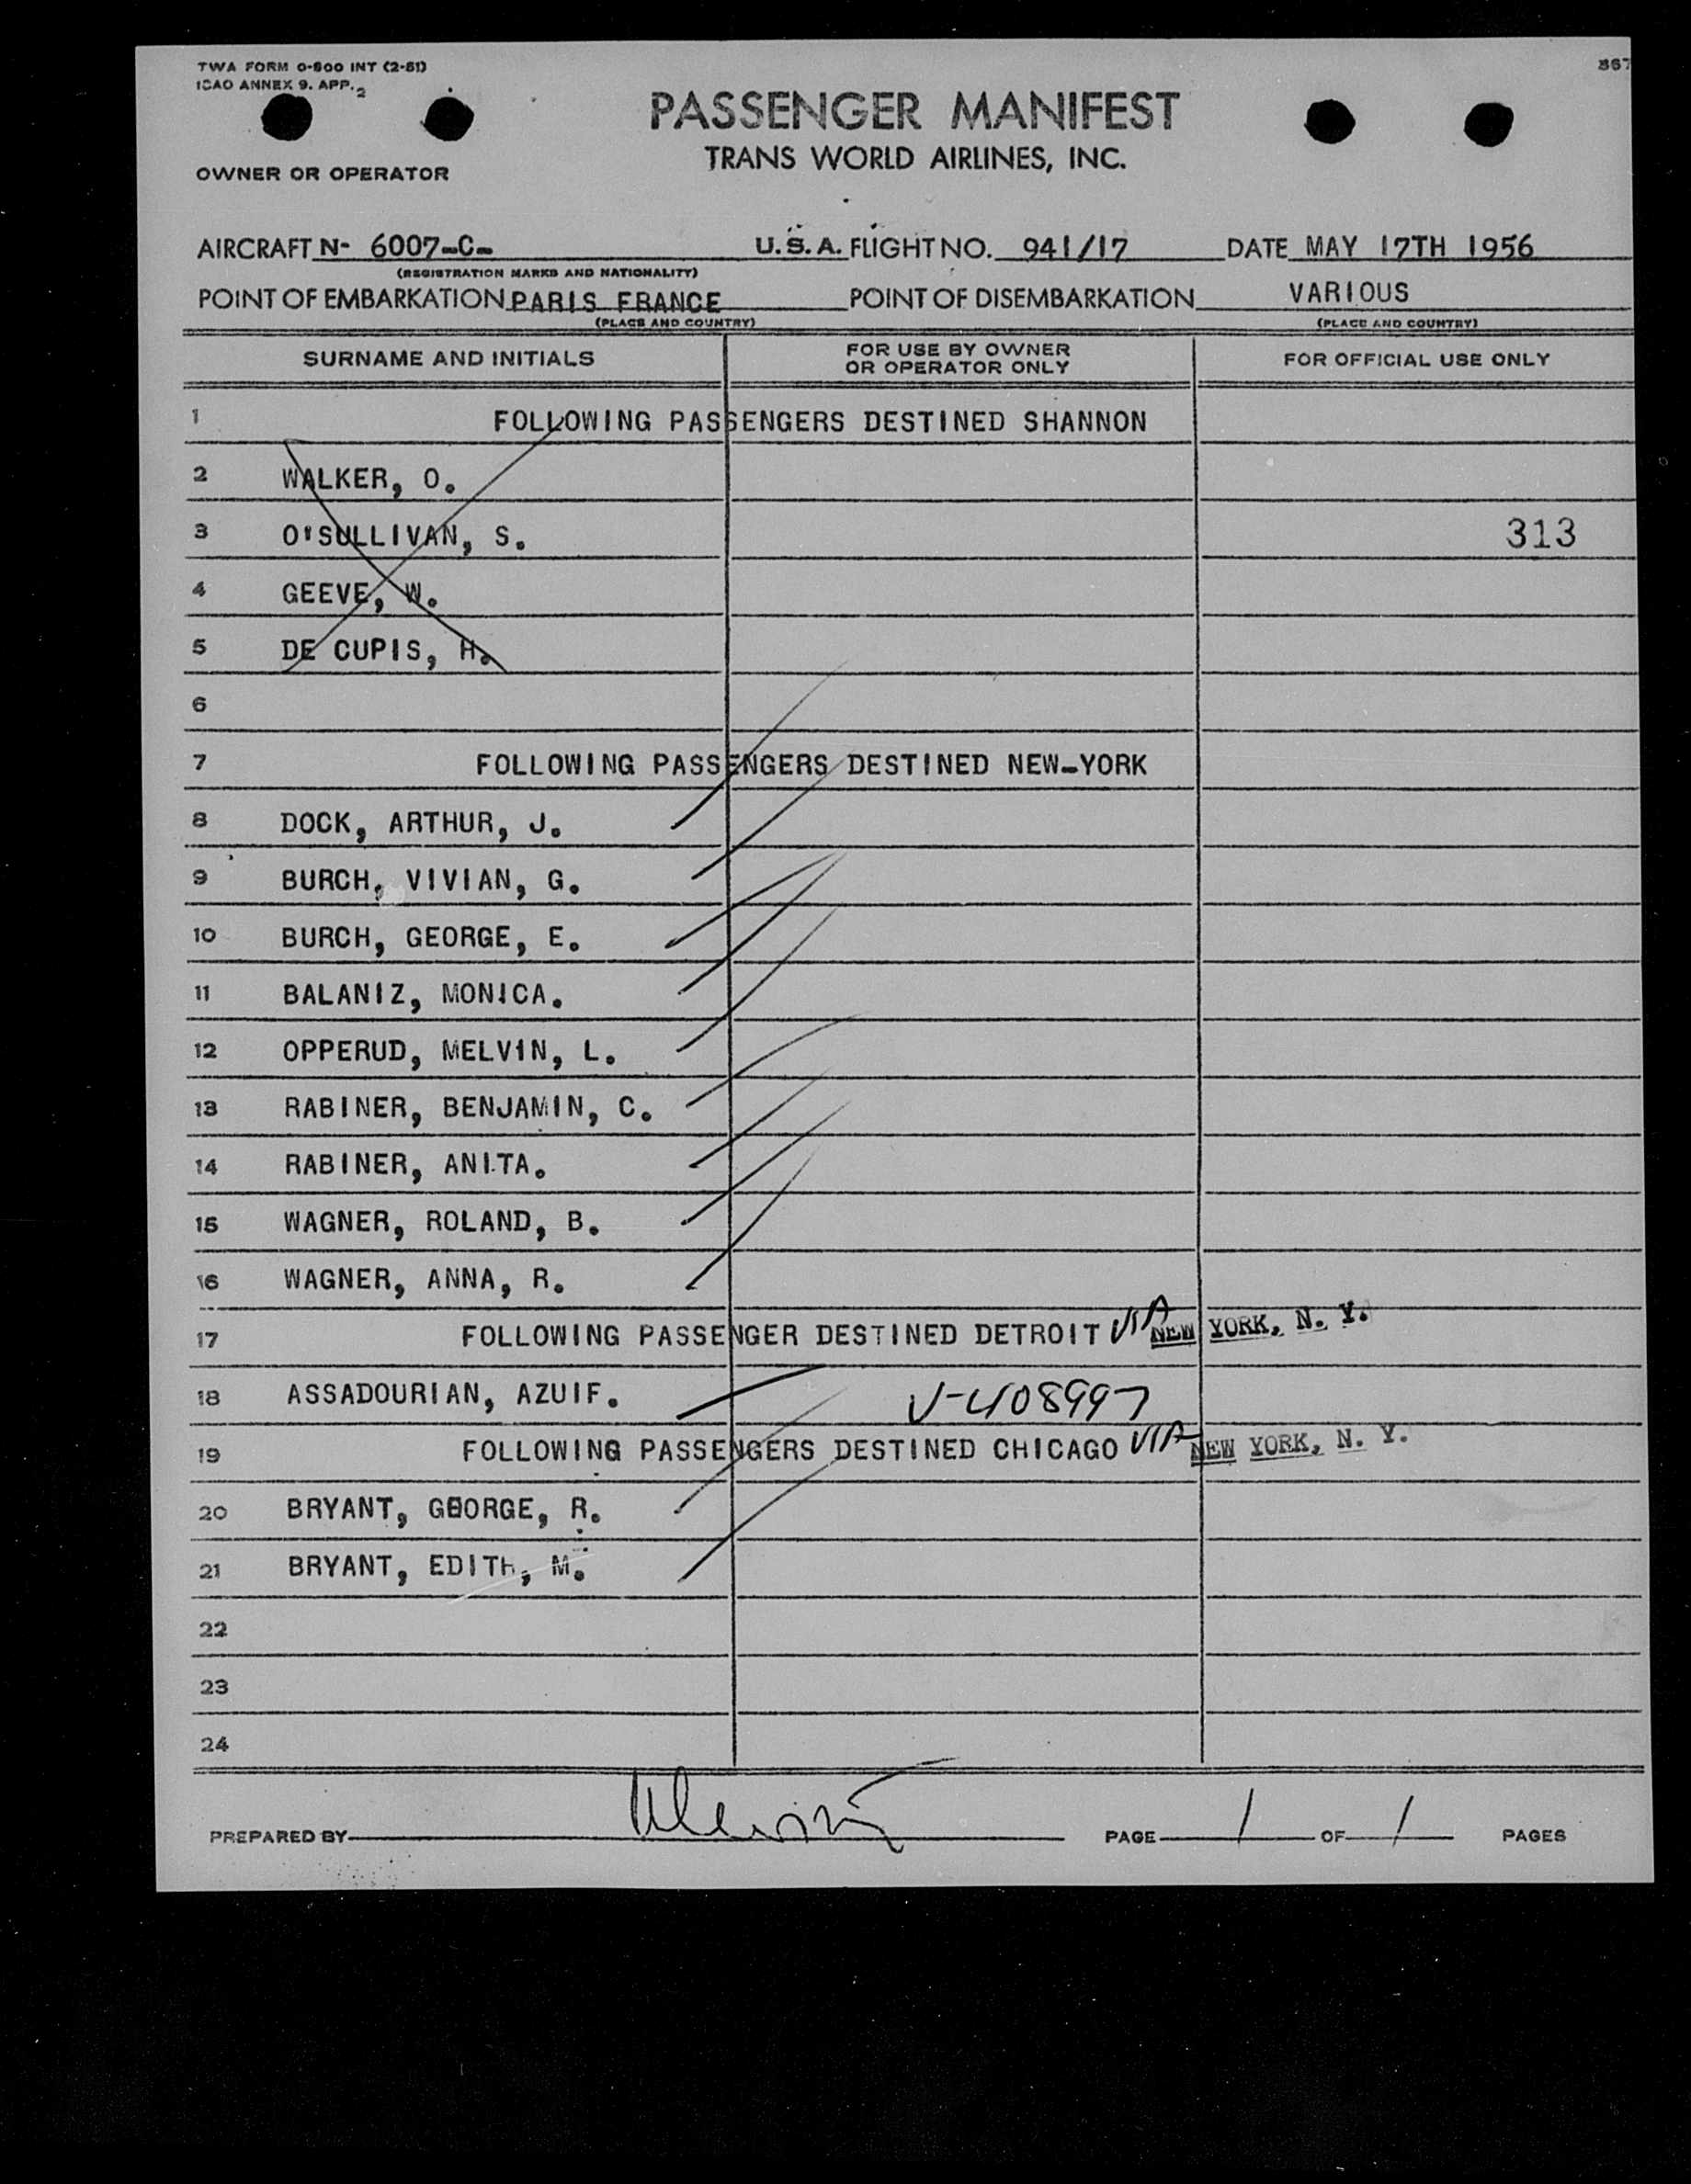 TWA FORM O-800 INT (2-51)
ICAO ANNEX 9. APP. 2
367
PASSENGER MANIFEST
TRANS WORLD AIRLINES, INC.
OWNER OR OPERATOR
AIRCRAFT N- 6007-C- U.S.A. FLIGHT NO. 941/17 DATE MAY 17TH 1956
(REGISTRATION MARKS AND NATIONALITY)
POINT OF EMBARKATION PARIS FRANCE POINT OF DISEMBARKATION VARIOUS
(PLACE AND COUNTRY) (PLACE AND COUNTRY)
SURNAME AND INITIALS FOR USE BY OWNER OR OPERATOR ONLY FOR OFFICIAL USE ONLY
1 FOLLOWING PASSENGERS DESTINED SHANNON
2 WALKER, O.
3 O'SULLIVAN, S. 313
4 GEEVE, W.
5 DE CUPIS, H.
6
7 FOLLOWING PASSENGERS DESTINED NEW-YORK
8 DOCK, ARTHUR, J.
9 BURCH, VIVIAN, G.
10 BURCH, GEORGE, E.
11 BALANIZ, MONICA.
12 OPPERUD, MELVIN, L.
13 RABINER, BENJAMIN, C.
14 RABINER, ANITA.
15 WAGNER, ROLAND, B.
16 WAGNER, ANNA, R.
17 FOLLOWING PASSENGER DESTINED DETROIT VIA NEW YORK, N. Y.
18 ASSADOURIAN, AZUIF. V-408997
19 FOLLOWING PASSENGERS DESTINED CHICAGO VIA NEW YORK, N. Y.
20 BRYANT, GEORGE, R.
21 BRYANT, EDITH, M.
22
23
24
PREPARED BY PAGE 1 OF 1 PAGES